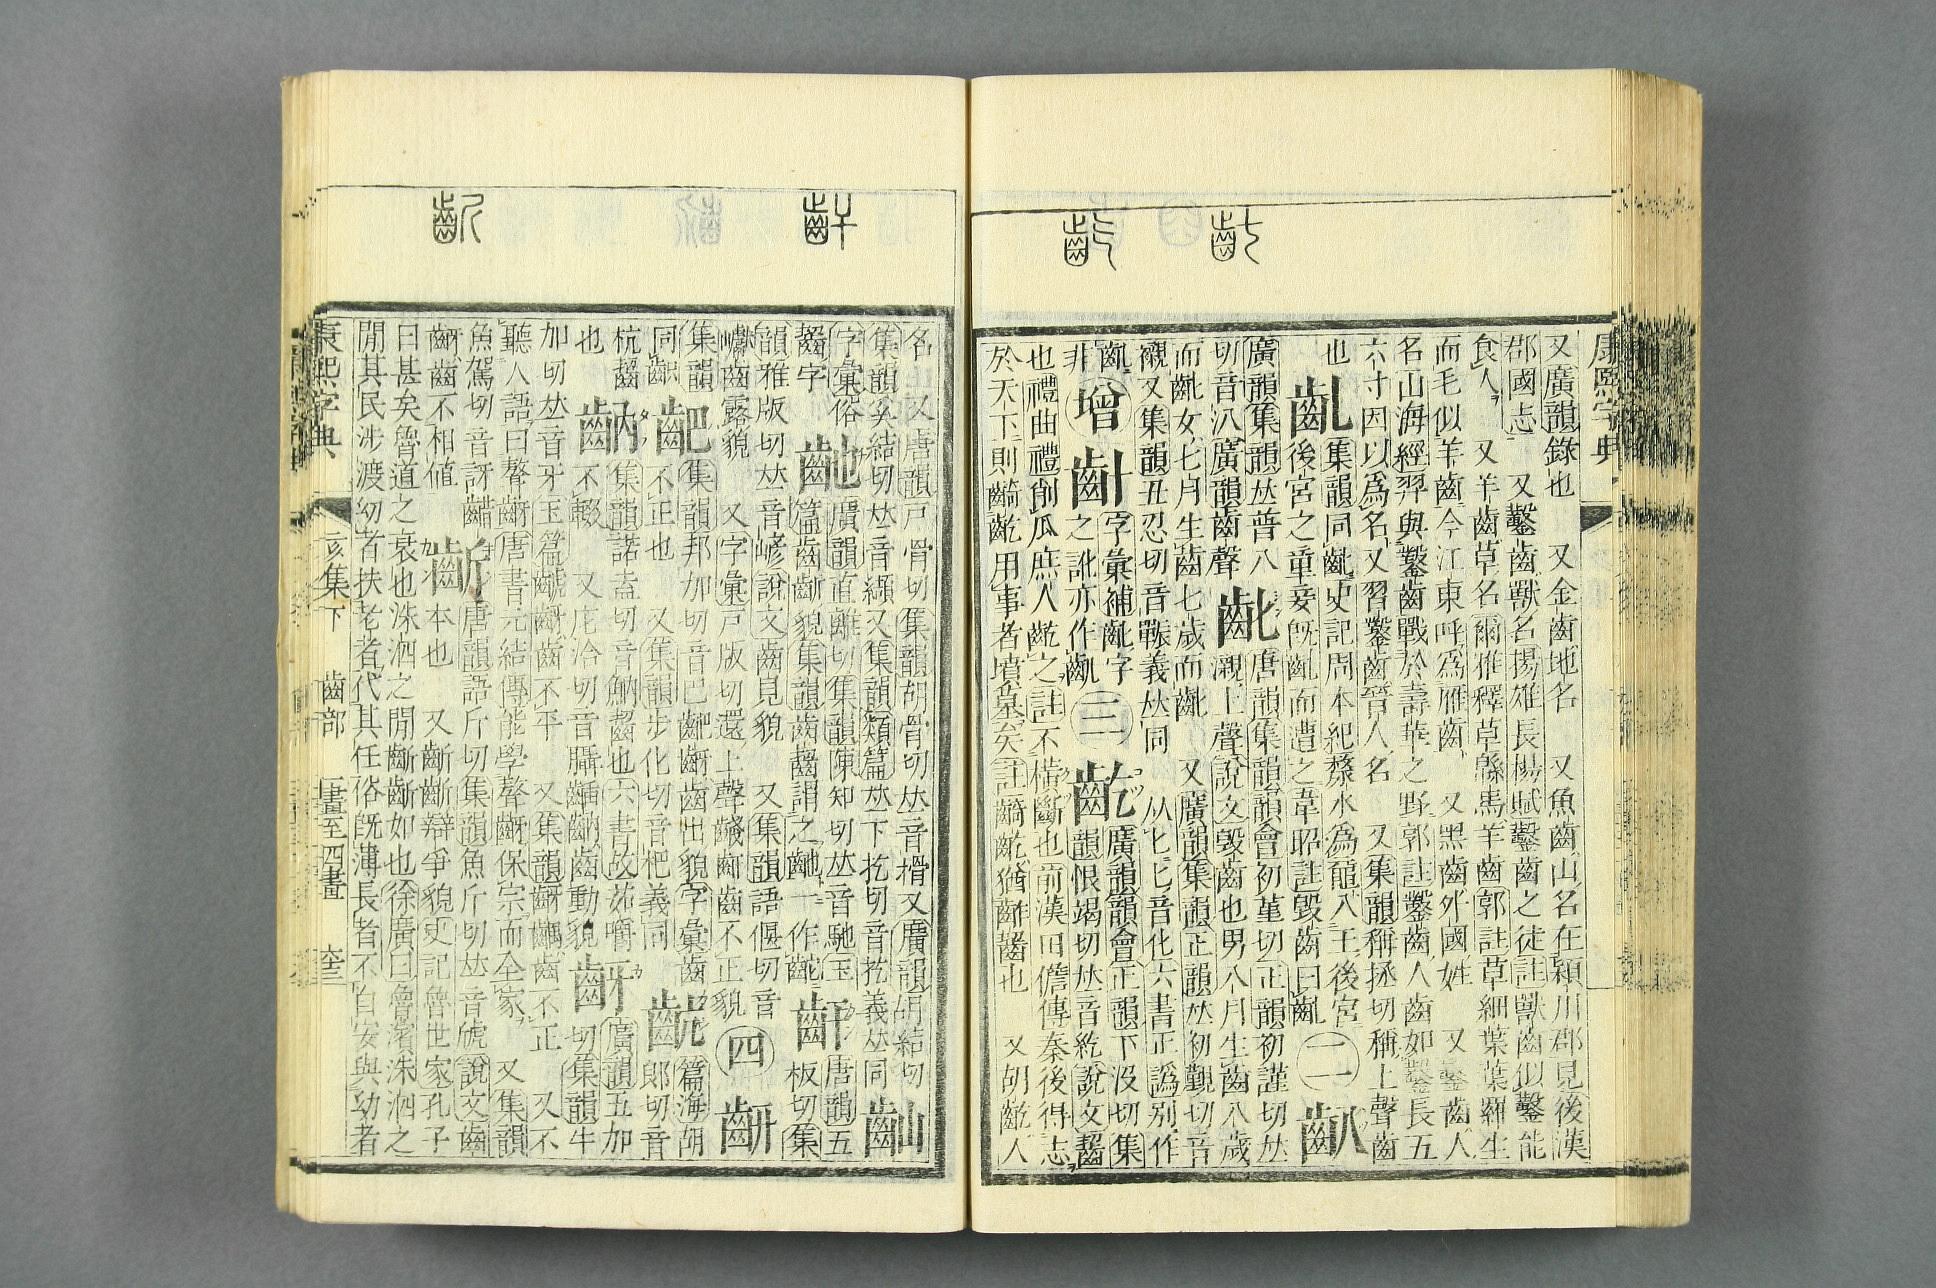 康熙字典
又廣韻錄也 又金齒地名 又魚齒山名在潁川郡見後漢
郡國志 又鑿齒獸名揚雄長楊賦鑿齒之徒註獸齒似鑿能
食人 又羊齒草名爾雅釋草緜馬羊齒郭註草細葉葉羅生
而毛似羊齒今江東呼爲雁齒 又黑齒外國姓 又鑿齒人
名山海經羿與鑿齒戰於壽華之野郭註鑿齒人齒如鑿長五
六寸因以爲名又習鑿齒晉人名 又集韻稱拯切稱上聲齒
也 齓 集韻同齔史記周本紀漦水爲黿入王後宮
後宮之童妾旣齓而遭之韋昭註毀齒曰齓 二 𪗗
廣韻集韻𠀤普八 齔 唐韻集韻韻會初堇切正韻初謹切𠀤
切音汃廣韻齒聲 瀙上聲說文毀齒也男八月生齒八歲
而齔女七月生齒七歲而齔 又廣韻集韻正韻𠀤初覲切音
櫬又集韻丑忍切音辴義𠀤同 从匕匕音化六書正譌別作
齓 字彙補齔字 三 齕 廣韻韻會正韻下沒切集
非 增 之訛亦作齓 韻恨竭切𠀤音紇說文齧
也禮曲禮削瓜庶人齕之註不橫斷也前漢田儋傳秦復得志
於天下則齮齕用事者墳墓矣註齮齕猶齚齧也 又胡齕人
名 又唐韻戸骨切集韻胡骨切𠀤音搰又廣韻胡結切
集韻奚結切𠀤音纈又集韻類篇𠀤下扢切音扢義𠀤同
字彙俗 廣韻直離切集韻陳知切𠀤音馳玉 唐韻五
齧字 篇齒齗貌集韻齒齧謂之 一作 板切集
韻雅版切𠀤音嵃說文齒見貌 又集韻語偃切音
巘齒露貌 又字彙戸版切還上聲 齒不正貌 四 齖
集韻 集韻邦加切音巴 齖齒出貌字彙齒 篇海胡
同齞 不正也 又集韻步化切音杷義同 郎切音
杭齧 集韻諾盍切音魶齧也六書故茹嚼 廣韻五加
也 不輟 又 洽切音 齒動貌 切集韻牛
加切𠀤音牙玉篇 齖齒不平 又集韻齖齵齒不正 又不
聽人語曰聱齖唐書元結傳能學聱齖保宗而全家 又集韻
魚駕切音訝齰 齗 唐韻語斤切集韻魚斤切𠀤音虓說文齒
齖齒不相値 本也 又齗齗辯爭貌史記魯世家孔子
曰甚矣魯道之衰也洙泗之閒齗齗如也徐廣曰魯濱洙泗之
閒其民涉渡幼者扶老者代其任俗旣薄長者不自安與幼者
康熙字典 亥集下 齒部 一畫至四畫